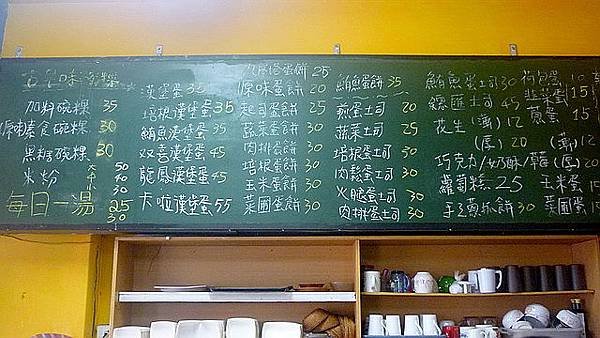 古早味碗粿
加料碗粿 35
原味素食碗粿 30
黑糖碗粿 30
米粉 大 50
中 40
小 30
每日一湯 25
30
漢堡蛋 35
培根漢堡蛋 35
鮪魚漢堡蛋 35
双喜漢堡蛋 45
龍鳳漢堡蛋 45
卡啦漢堡蛋 55
九層塔蛋餅 25
原味蛋餅 20
起司蛋餅 25
蔬菜蛋餅 30
肉排蛋餅 30
培根蛋餅 30
玉米蛋餅 30
菜圃蛋餅 30
鮪魚蛋餅 35
煎蛋土司 20
蔬菜土司 25
培根蛋土司 30
肉鬆蛋土司 30
火腿蛋土司 30
肉排蛋土司 30
鮪魚蛋土司 30
總匯土司 45
花生 (薄) 12
(厚) 20
巧克力/奶酥/草莓 (薄) 12
(厚) 20
蘿蔔糕 25
手工蔥抓餅 30
荷包蛋 10
韭菜蛋 15
蔥蛋 15
玉米蛋
菜圃蛋